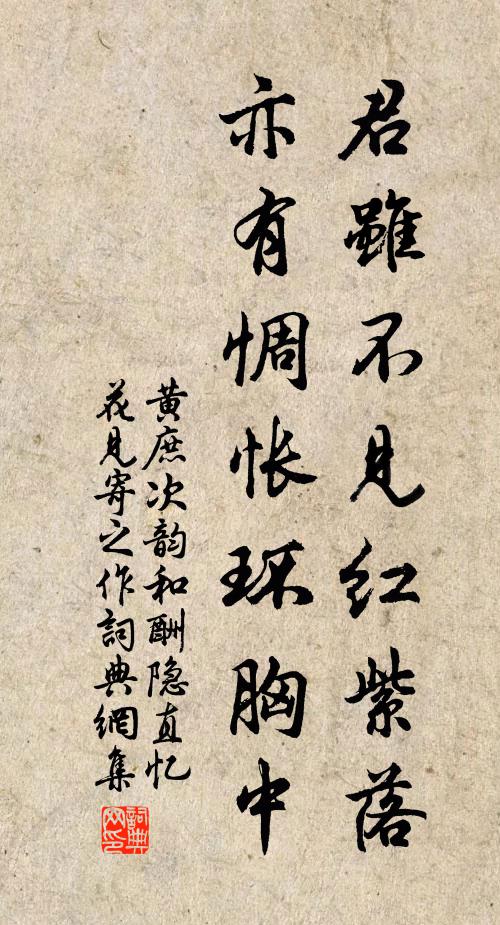 君雖不见红紫落
亦有惆怅环胸中
黄庶次韵和酬隐直忆
花见寄之作詞典網集
詞典网印